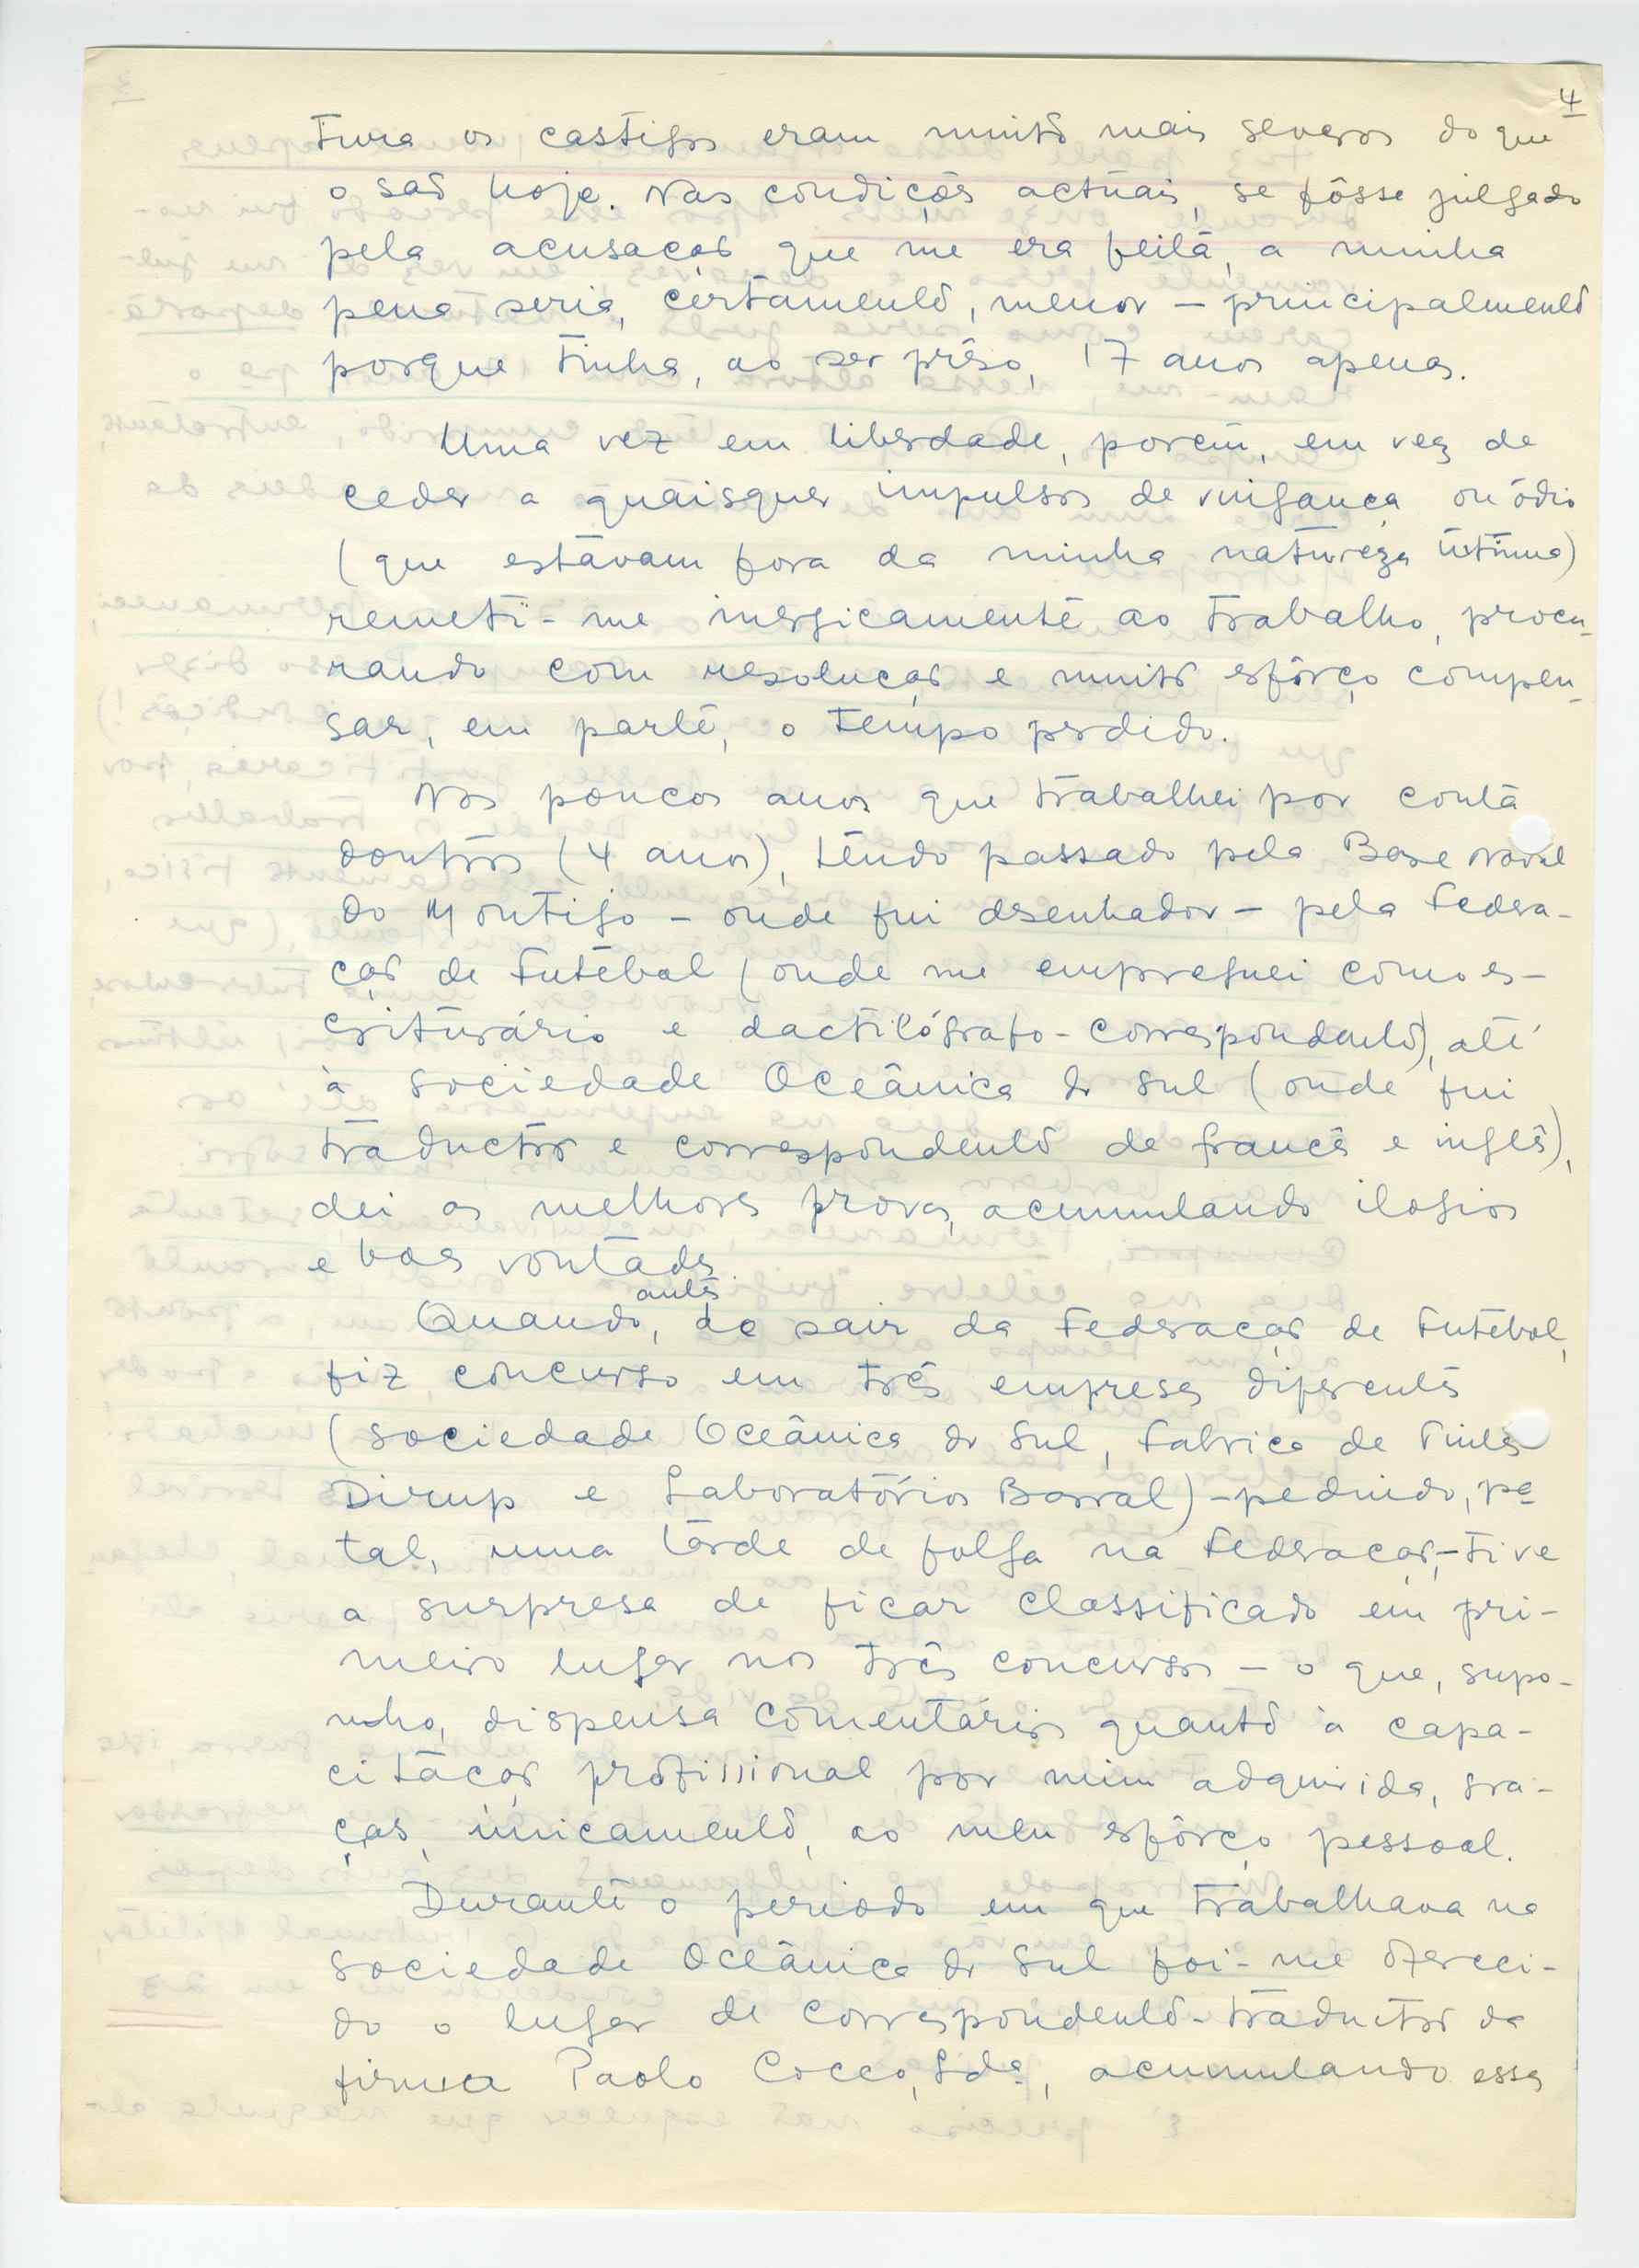 4
tura os castigos eram muito mais severos do que
o são hoje. Nas condições actuais, se fôsse julgado
pela acusação que me era feita, a minha
pena seria, certamente, menor – principalmente
porque tinha, ao ser prêso, 17 anos apenas.
Uma vez em liberdade, porém, em vez de
ceder a quaisquer impulsos de vingança ou ódio
(que estavam fora da minha natureza íntima)
remeti-me enèrgicamente ao trabalho, procu-
rando com resolução e muito esfôrço compen-
sar, em parte, o tempo perdido.
Nos poucos anos que trabalhei por conta
doutros (4 anos), tendo passado pela Base Naval
do Montijo – onde fui desenhador – pela Federa-
ção de Futebol (onde me empreguei como es-
criturário e dactilógrafo-correspondente), até
à Sociedade Oceânica do Sul (onde fui
traductor e correspondente de francês e inglês),
dei as melhores provas, acumulando elogios
e boas vontades.
antes
Quando, de sair da Federação de Futebol,
fiz concurso em três empresas diferentes
(Sociedade Oceânica do Sul, Fabrica de Tintas
Dirup e Laboratórios Barral) – pedindo, pª
tal, uma tarde de folga na Federação, – tive
a surpresa de ficar classificado em pri-
meiro lugar nos três concursos – o que, supo-
nho, dispensa comentários quanto à capa-
citação profissional por mim adquirida, gra-
ças, ùnicamente, ao meu esfôrço pessoal.
Durante o periodo em que trabalhava na
Sociedade Oceânica do Sul foi-me ofereci-
do o lugar de correspondente-traductor da
firma Paolo Cocco, Ldª, acumulando essas